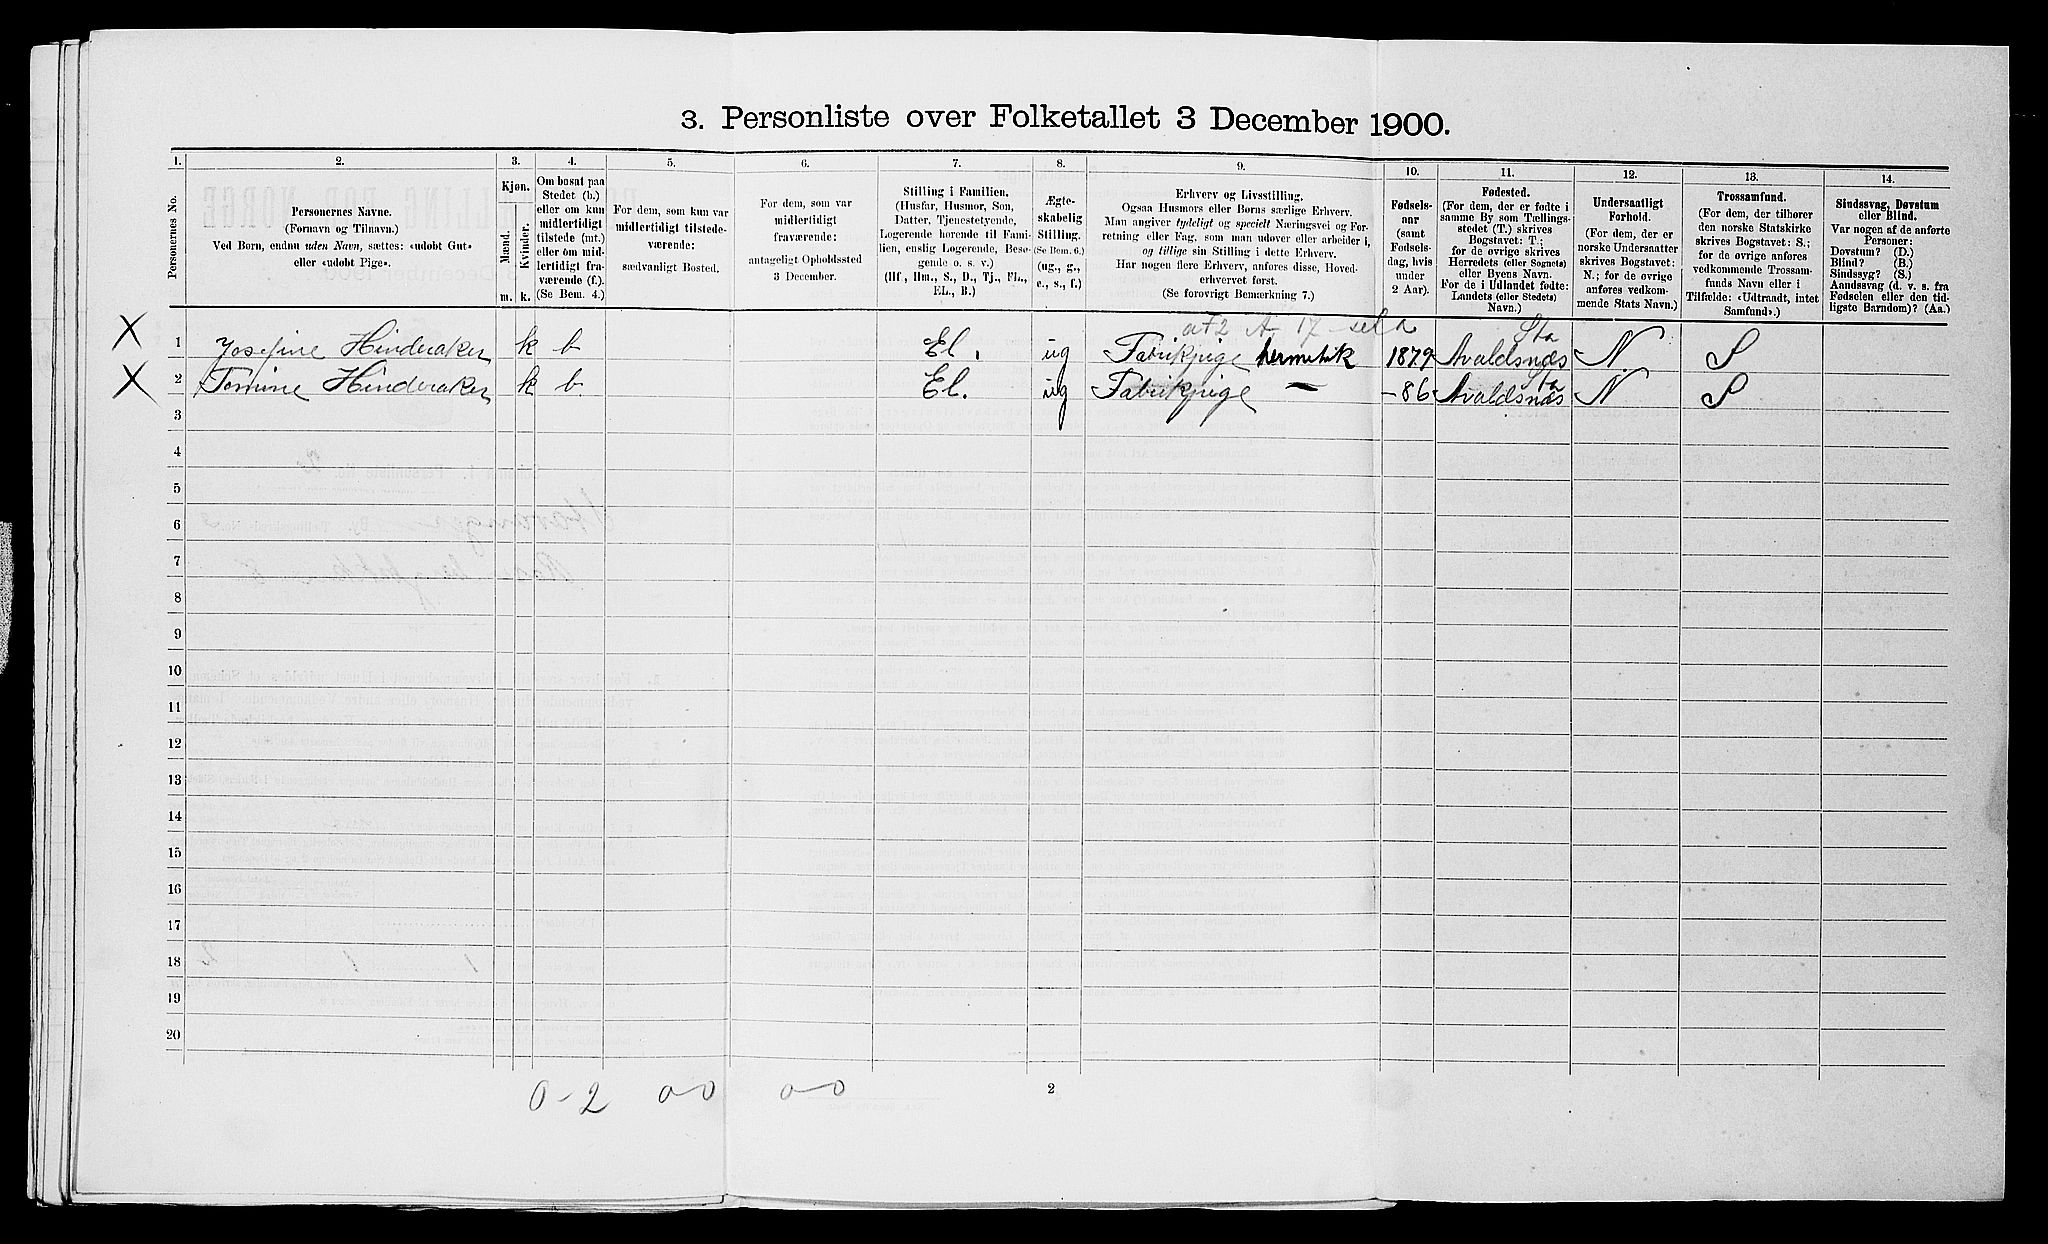 3. Personliste over Folketallet 3 December 1900.
1. 2. 3. 4. 5. 6. 7. 8. 9. 10. 11. 12. 13. 14.
Personernes No.
Personernes Navne.
(Fornavn og Tilnavn.)
Ved Børn, endnu uden Navn, sættes: «udøbt Gut»
eller «udøbt Pige».
Kjøn.
Mænd.
Kvinder.
m. k.
Om bosat paa
Stedet (b.)
eller om kun
midlertidigt
tilstede (mt.)
eller om mid-
lertidigt fra-
værende (f.).
(Se Bem. 4.)
For dem, som kun var
midlertidigt tilstede-
værende:
sædvanligt Bosted.
For dem, som var
midlertidigt
fraværende:
antageligt Opholdssted
3 December.
Stilling i Familien.
(Husfar, Husmor, Søn,
Datter, Tjenestetyende,
Logerende hørende til Fami-
lien, enslig Logerende, Besø-
gende o. s. v.)
(Hf., Hm., S., D., Tj., FL.,
EL., B.)
Ægte-
skabelig
Stilling.
(Se Bem. 6.)
(ug., g.,
e., s., f.)
Erhverv og Livsstilling.
Ogsaa Husmors eller Børns særlige Erhverv.
Man angiver tydeligt og specielt Næringsvei og For-
retning eller Fag, som man udøver eller arbeider i,
og tillige sin Stilling i dette Erhverv.
Har nogen flere Erhverv, anføres disse, Hoved-
erhvervet først.
(Se forøvrigt Bemærkning 7.)
Fødsels-
aar
(samt
Fødsels-
dag, hvis
under
2 Aar).
Fødested.
(For dem, der er fødte i
samme By som Tællings-
stedet (T.) skrives
Bogstavet: T.;
for de øvrige skrives
Herredets (eller Sognets)
eller Byens Navn.
For de i Udlandet fødte:
Landets (eller Stedets)
Navn.)
Undersaatligt
Forhold.
(For dem, der er
norske Undersaatter
skrives Bogstavet:
N.; for de øvrige
anføres vedkom-
mende Stats Navn.)
Trossamfund.
(For dem, der tilhører
den norske Statskirke
skrives Bogstavet: S.;
for de øvrige anføres
vedkommende Trossam-
funds Navn eller i
Tilfælde: «Udtraadt, intet
Samfund».)
Sindssvag, Døvstum
eller Blind.
Var nogen af de anførte
Personer:
Døvstum? (D.)
Blind? (B.)
Sindssyg? (S.)
Aandssvag (d. v. s. fra
Fødselen eller den tid-
ligste Barndom)? (Aa.)
X 1 Josefine Hinderaker k b El. ug Fabrikpige hermetik 1879 Avaldsnæs Sta N. S
X 2 Tomine Hinderaker k b. El. ug Fabrikpige — -86 Avaldsnæs Sta N S
3
4
5
6
7
8
9
10
11
12
13
14
15
16
17
18
19
20
0-2 0-0 0-0 2